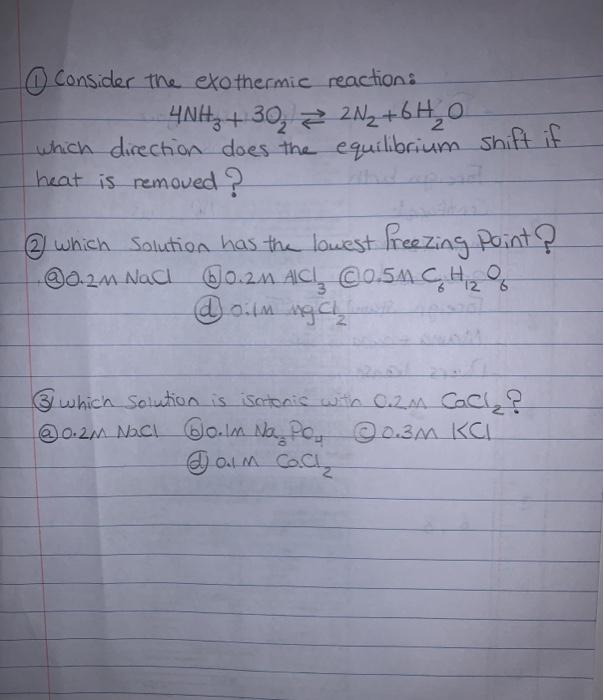 ① Consider the exothermic reaction:
4NH₃ + 3O₂ ⇄ 2N₂ + 6H₂O
which direction does the equilibrium shift if
heat is removed?
② which solution has the lowest freezing point?
ⓐ 0.2M NaCl ⓑ 0.2M AlCl₃ ⓒ 0.5M C₆H₁₂O₆
ⓓ 0.1M MgCl₂
③ which solution is isotonic with 0.2M CaCl₂?
ⓐ 0.2M NaCl ⓑ 0.1M Na₃PO₄ ⓒ 0.3M KCl
ⓓ 0.1M CaCl₂